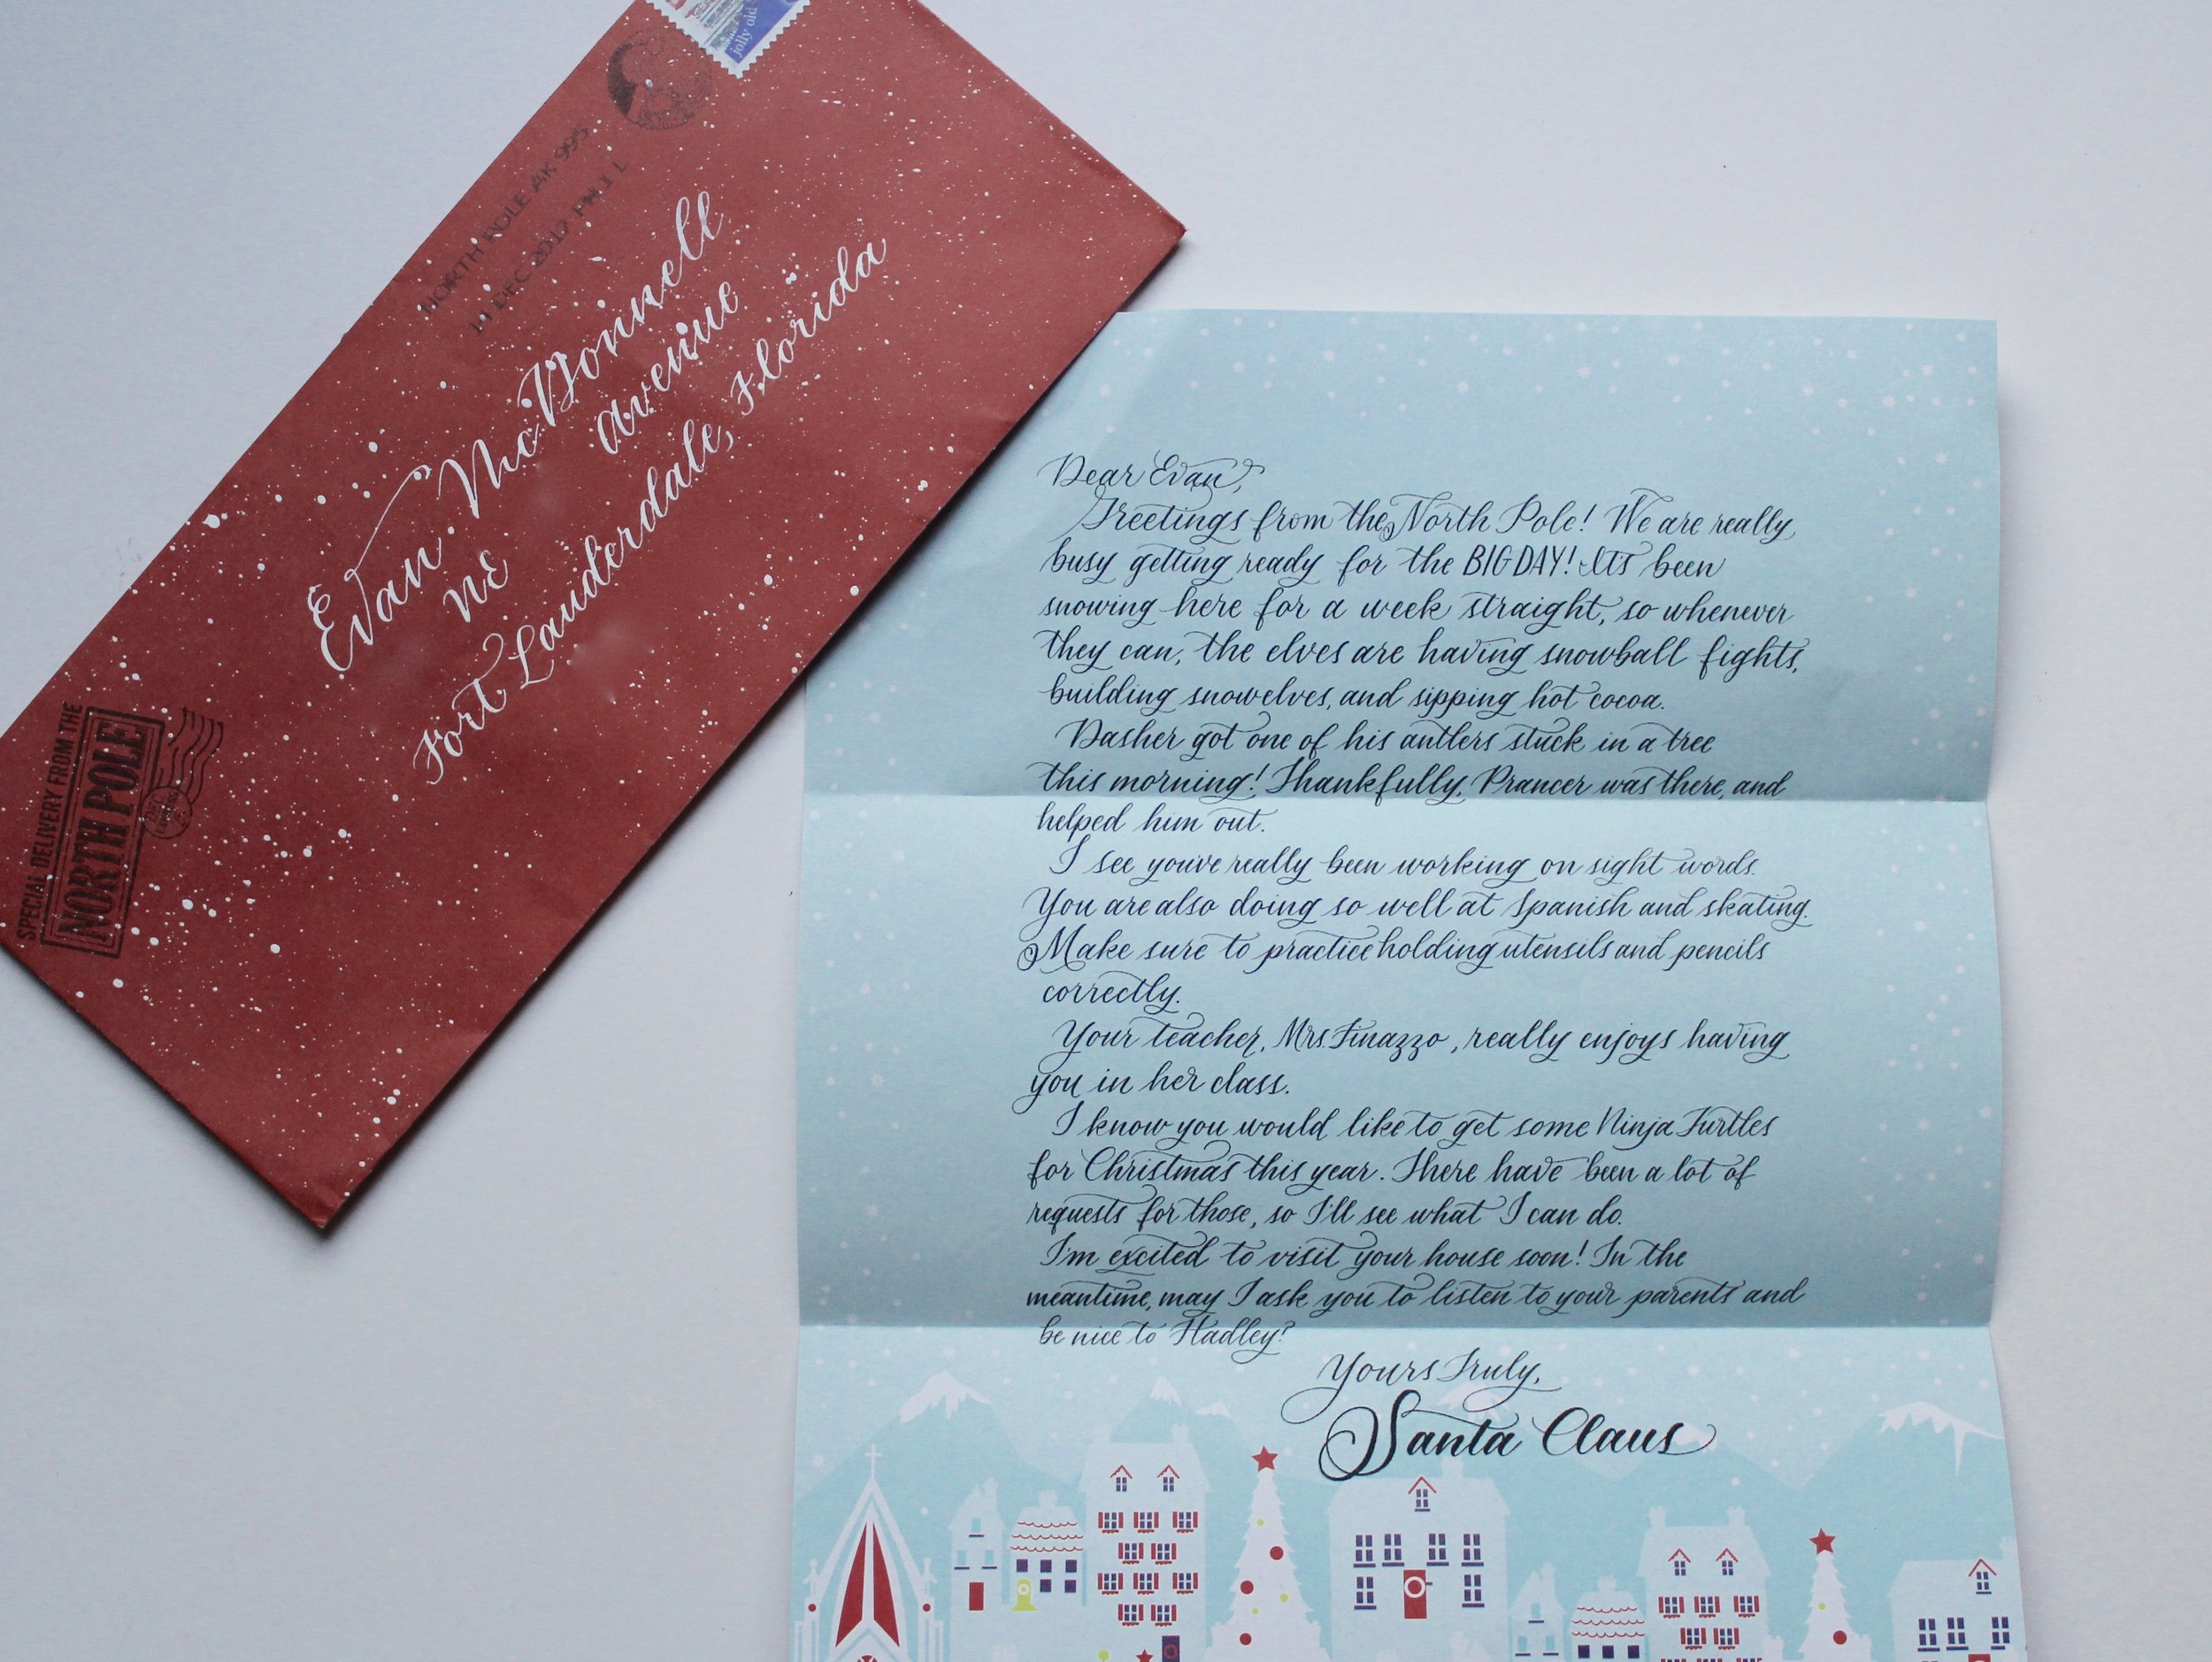 jolly old
NORTH POLE AK 995
19 DEC 2017 PM 1 L
Evan McDonnell
NE Avenue
Fort Lauderdale, Florida
SPECIAL DELIVERY FROM THE
NORTH POLE
Dear Evan,
Greetings from the North Pole! We are really
busy getting ready for the BIG DAY! It's been
snowing here for a week straight, so whenever
they can, the elves are having snowball fights,
building snowelves, and sipping hot cocoa.
Dasher got one of his antlers stuck in a tree
this morning! Thankfully, Prancer was there, and
helped him out.
I see you've really been working on sight words.
You are also doing so well at Spanish and skating.
Make sure to practice holding utensils and pencils
correctly.
Your teacher, Mrs. Finazzo, really enjoys having
you in her class.
I know you would like to get some Ninja Turtles
for Christmas this year. There have been a lot of
requests for those, so I'll see what I can do.
I'm excited to visit your house soon! In the
meantime, may I ask you to listen to your parents and
be nice to Hadley?
Yours Truly,
Santa Claus